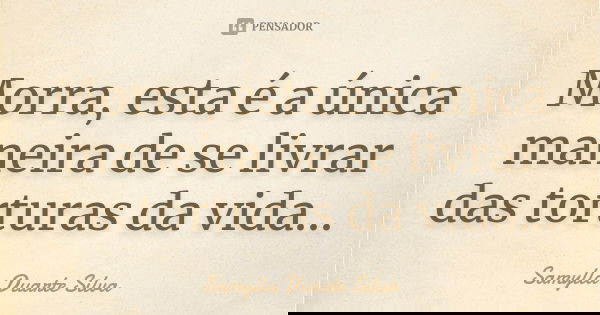 PENSADOR
Morra, esta é a única
maneira de se livrar
das torturas da vida...
Samylla Duarte Silva